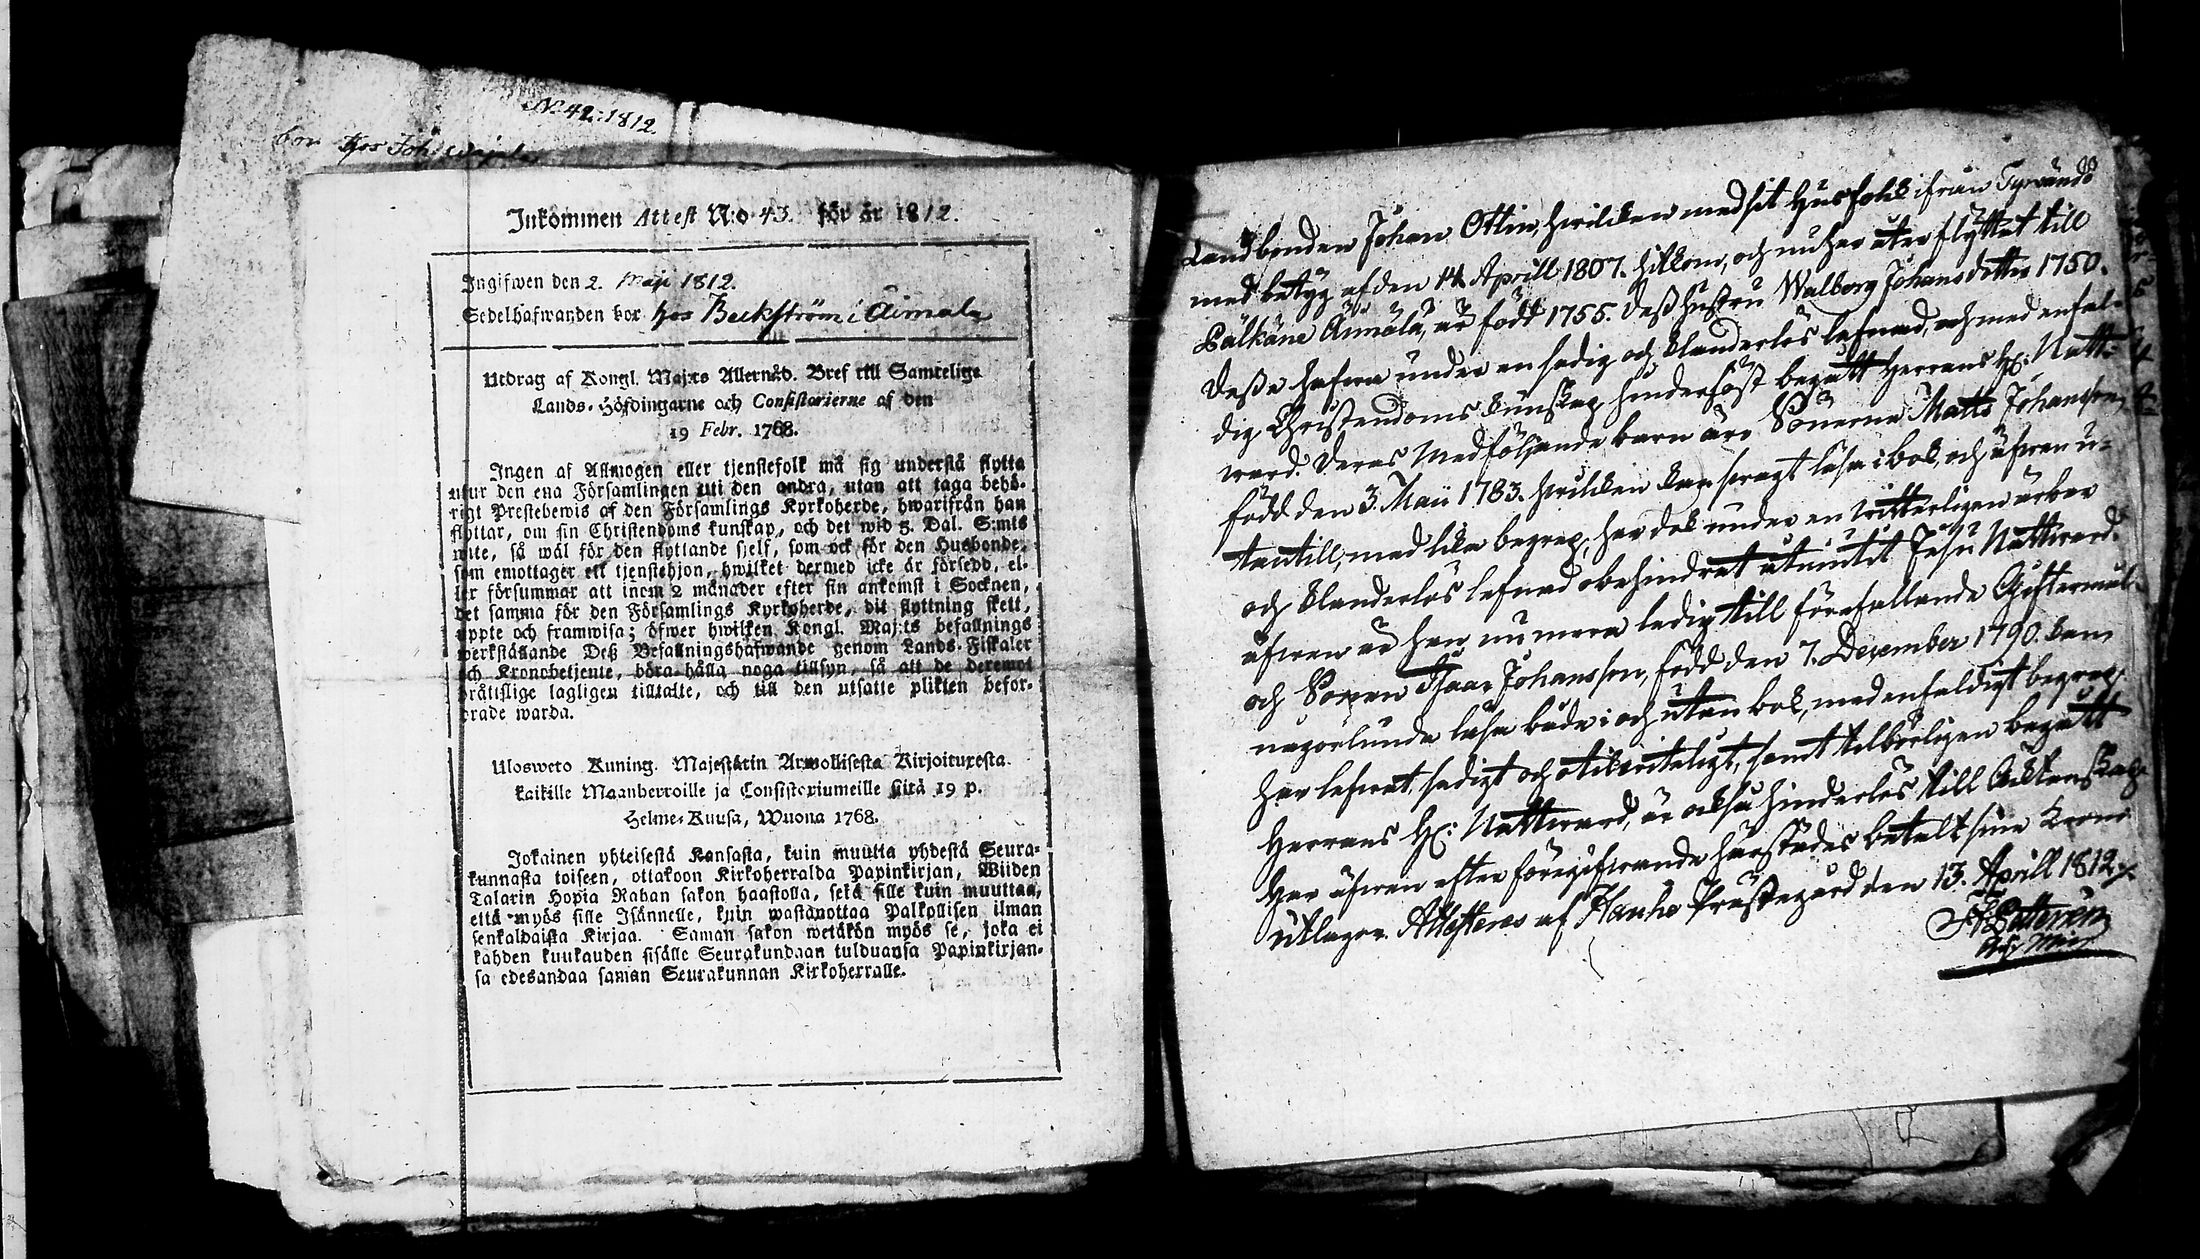 No 42. 1812.
bor hos Joh:
Inkommen Attest N:o 43. för år 1812.
Ingifwen den 2. Maji 1812.
Sedelhafwanden bor hos Beckström i Äimala
Utdrag af Kongl. Maj:ts Allernåd. Bref till Samtelige
Lands-Höfdingarne och Consistorierne af den
19 Febr. 1768.
Ingen af Allmogen eller tjenstefolk må sig understå flytta
utur den ena Församlingen uti den andra, utan att taga behö-
rigt Prestebewis af den Församlings Kyrkoherde, hwarifrån han
flyttar, om sin Christendoms kunskap, och det wid 5. Dal. S:mts
wite, så wäl för den flyttande sjelf, som ock för den Husbonde,
som emottager ett tjenstehjon, hwilket dermed icke är försedd, el-
ler försummar att inom 2 månader efter sin ankomst i Socknen,
det samma för den Församlings Kyrkoherde, dit flyttning skett,
uppte och framwisa; öfwer hwilken Kongl. Maj:ts befallnings
werkställande Deß Befallningshafwande genom Lands-Fiskaler
och Kronobetjente, böra hålla noga tillsyn, så att de deremot
bråttslige lagligen tilltalte, och till den utsatte plikten befor-
drade warda.
Ulosweto Kuning. Majestätin Armollisesta Kirjoituxesta
kaikille Maanherroille ja Consistoriumeille siitä 19 p.
Helme-Kuusa, Wuona 1768.
Jokainen yhteisestä Kansasta, kuin muutta yhdestä Seura-
kunnasta toiseen, ottakoon Kirkoherralda Papinkirjan, Wiiden
Talarin Hopia Rahan sakon haastolla, sekä sille kuin muuttaa,
että myös sille Isännelle, kuin wastanottaa Palkollisen ilman
senkaldaista Kirjaa. Saman sakon wetäkön myös se, joka ei
kahden kuukauden sisälle Seurakundaan tulduansa Papinkirjan-
sa edesandaa saman Seurakunnan Kirkoherralle.
Landbonden Johan Ottin, hwilcken med sit Husfolck ifrån Tyrwändö
med betyg af den 14 Aprill 1807. hitkom, och nu har åter flyttat till
Pälkäne Äimälä, är född 1755. Deß hustru Walborg Johans dotter 1750.
Deße hafwa under en sedig och klanderlös lefnad, och med enfal-
dig Christendoms kunskap, hinderlöst begått Herrans H: Natt-
ward. Deras medföljande barn äro Sönerna Matts Johansson,
född den 3. Maii 1783. hwilcken kan swagt läsa i bok, och äfwen u-
tantill, med lika begrep, har dock under en witterligen ärbar
och klanderlös lefnad obehindrat utnjutit Jesu Nattward.
äfwen är han nu mera ledig till förefallande Giftermål.
och Sonen Isaac Johansson, född den 7. December 1790. kan
någorlunda läsa både i och utan bok, med enfaldigt begrep,
har lefwat sedigt och otilwiteligt, samt tilbörligen begått
Herrans H: Nattward, är också hinderlös till Äcktenskap.
Har äfwen efter föregifwande härstädes betalt sine Krono
utlagor. Attesteras af Hauho Prästegård den 13. Aprill 1812